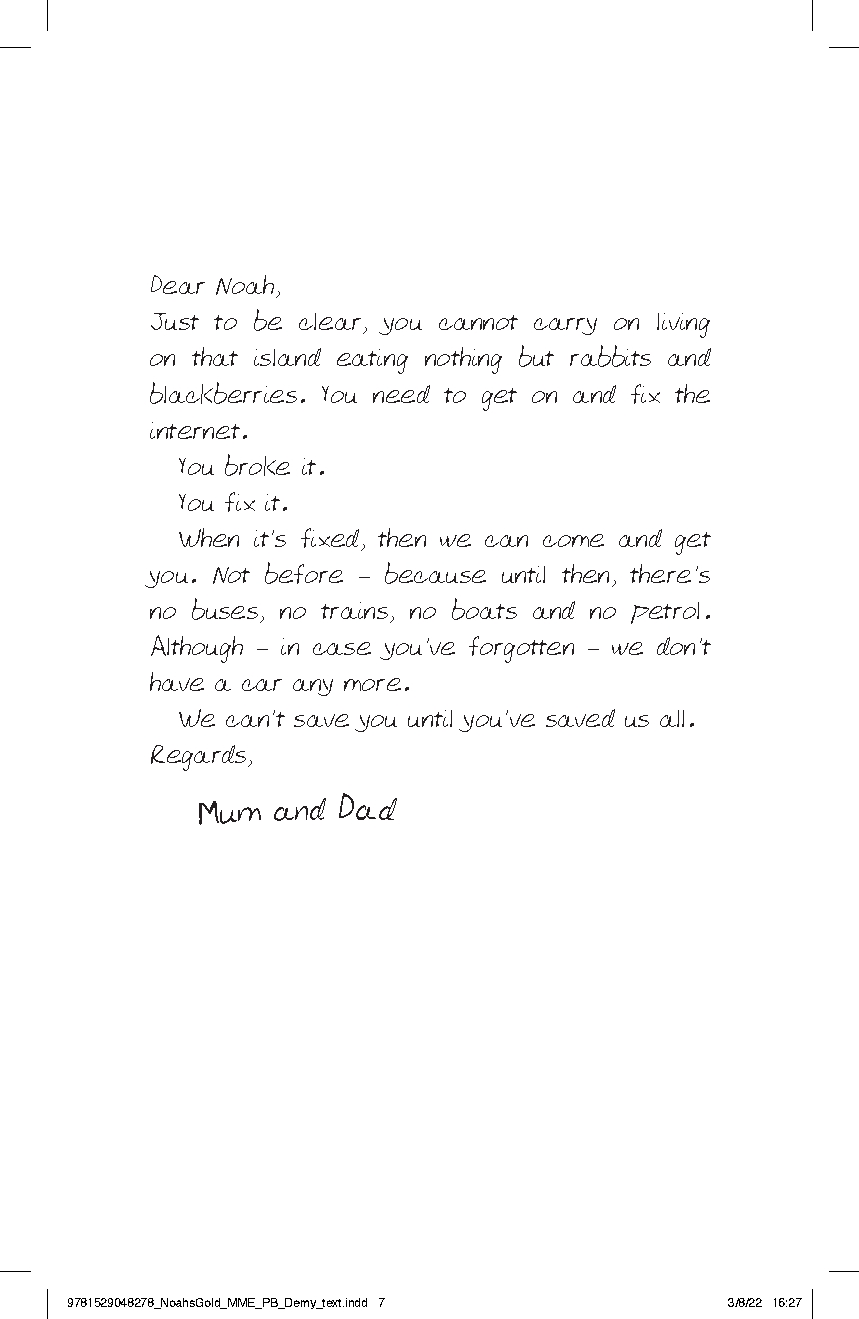 Dear Noah,
Just to be clear, you cannot carry on living
on that island eating nothing but rabbits and
blackberries. You need to get on and fix the
internet.
You broke it.
You fix it.
When it's fixed, then we can come and get
you. Not before – because until then, there's
no buses, no trains, no boats and no petrol.
Although – in case you've forgotten – we don't
have a car any more.
We can't save you until you've saved us all.
Regards,
Mum and Dad
9781529048278_NoahsGold_MME_PB_Demy_text.indd 7 3/8/22 16:27